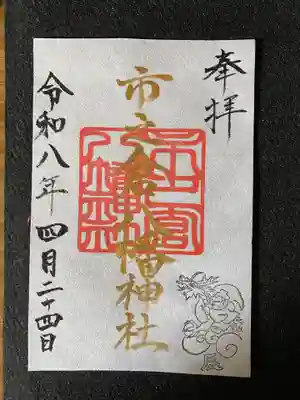 奉拝
市之倉八幡神社
令和八年 四月二十四日
辰